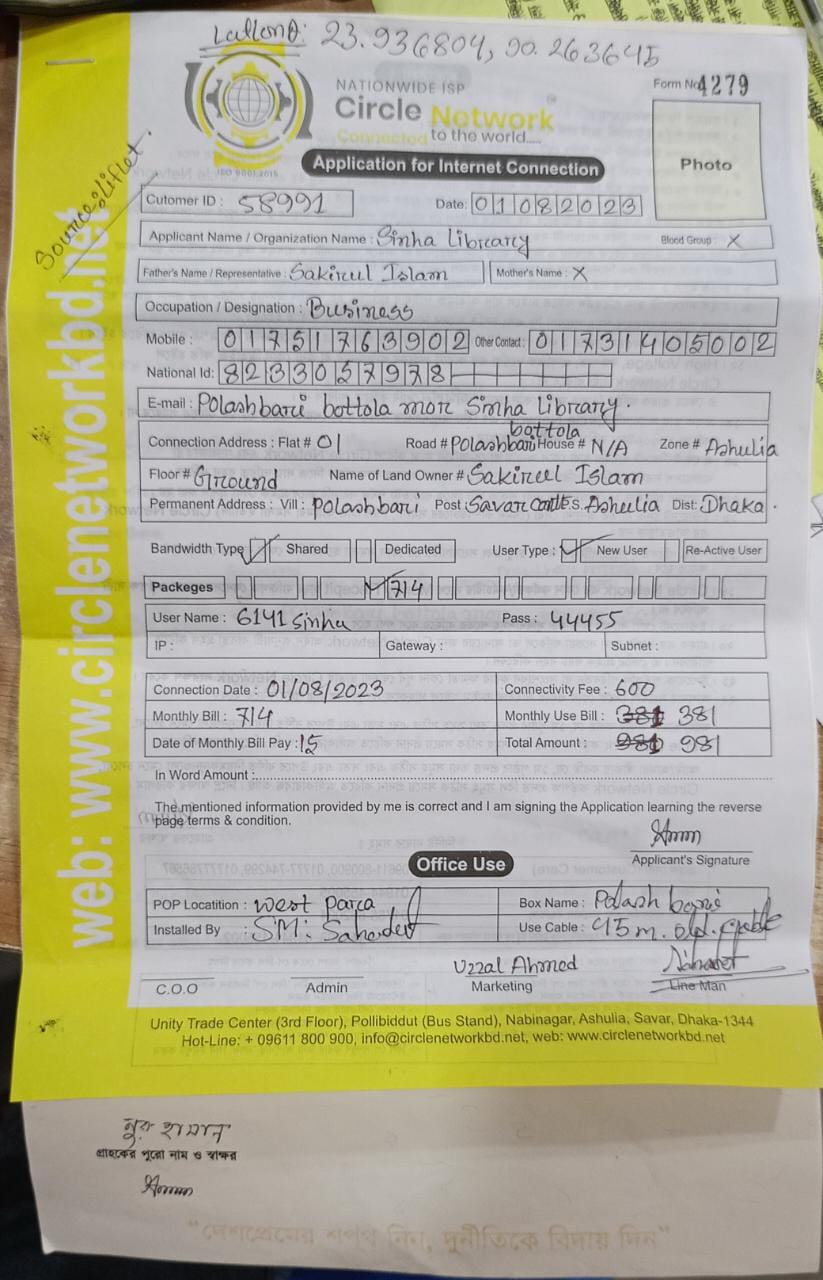 Latlong: 23.936804, 90.263645
Source: Liflet.
NATIONWIDE ISP
Form No 4279
Circle Network
Connected to the world.....
ISO 9001:2015
Application for Internet Connection
Photo
Cutomer ID : 58991
Date: 01082023
Applicant Name / Organization Name : Sinha Library
Blood Group : X
Father's Name / Representative : Sakirul Islam
Mother's Name : X
Occupation / Designation : Business
Mobile : 01751763902 Other Contact : 01731405002
National Id: 8233057978
E-mail : Polashbari bottola mor Sinha Library.
Connection Address : Flat # 01 Road # Polashbari bottola House # N/A Zone # Ashulia
Floor # Ground Name of Land Owner # Sakirul Islam
Permanent Address : Vill : Polashbari Post : Savar Cantt P.S. Ashulia Dist: Dhaka.
Bandwidth Type Shared Dedicated User Type : New User Re-Active User
Packeges 714
User Name : 6141 Sinha Pass : 44455
IP : Gateway : Subnet :
Connection Date : 01/08/2023 Connectivity Fee : 600
Monthly Bill : 714 Monthly Use Bill : 381
Date of Monthly Bill Pay : 15 Total Amount : 981
In Word Amount :
The mentioned information provided by me is correct and I am signing the Application learning the reverse
page terms & condition.
Applicant's Signature
Office Use
POP Locatition : west Parca Box Name : Polash bari
Installed By : SM: Use Cable : 45 m. old. cable
Uzzal Ahmed
C.O.O Admin Marketing Line Man
Unity Trade Center (3rd Floor), Pollibiddut (Bus Stand), Nabinagar, Ashulia, Savar, Dhaka-1344
Hot-Line: + 09611 800 900, info@circlenetworkbd.net, web: www.circlenetworkbd.net
web: www.circlenetworkbd.net
নুর হাসান
গ্রাহকের পুরো নাম ও স্বাক্ষর
"দেশপ্রেমের শপথ নিন, দুর্নীতিকে বিদায় দিন"